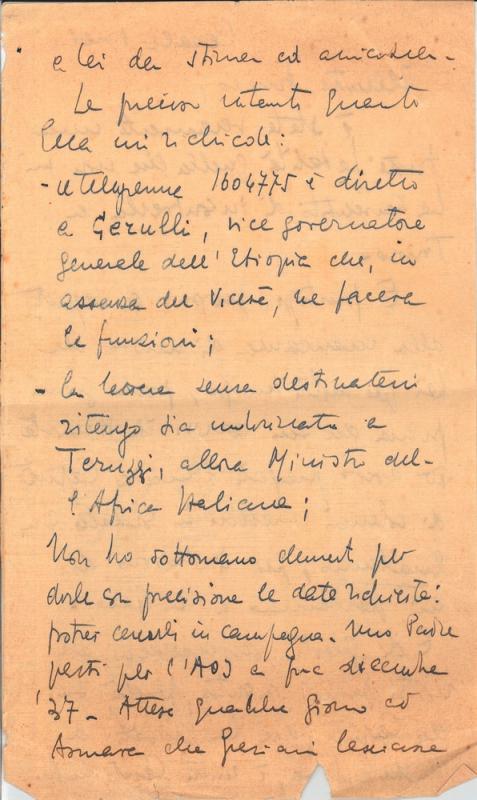 a lei da stima ed amicizia.
Le preciso intanto quanto
Ella mi richiede:
- il telegramma 1604775 è diretto
a Cerulli, vice governatore
generale dell'Etiopia che, in
assenza del Viceré, ne faceva
le funzioni;
- la lettera senza destinatari
ritengo sia indirizzata a
Teruzzi, allora Ministro del-
l'Africa Italiana;
Non ho sottomano elementi per
darle con precisione le date richieste:
potrei cercarli in campagna. Mio Padre
partì per l'AOI a fine dicembre
'37 - Attese qualche giorno ad
Asmara che Graziani lasciasse